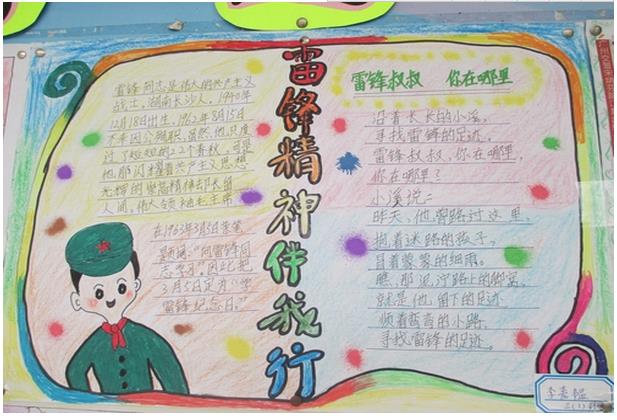 雷锋精神伴我行
雷锋同志是伟大的共产主义
战士，湖南长沙人，1940年
12月18日出生，1962年8月15日
不幸因公殉职。虽然，他只度
过了短短的22个春秋，可是
他那闪耀着共产主义思想
光辉的崇高精神却长留
人间。伟大领袖毛主席
在1963年3月5日亲笔
题词：“向雷锋同
志学习”。因此把
3月5日定为“学
雷锋纪念日。”
雷锋叔叔 你在哪里
沿着长长的小溪，
寻找雷锋的足迹。
雷锋叔叔，你在哪里，
你在哪里？
小溪说：
昨天，他曾路过这里，
抱着迷路的孩子，
冒着蒙蒙的细雨。
瞧，那泥泞路上的脚窝，
就是他留下的足迹。
顺着弯弯的小路，
寻找雷锋的足迹。